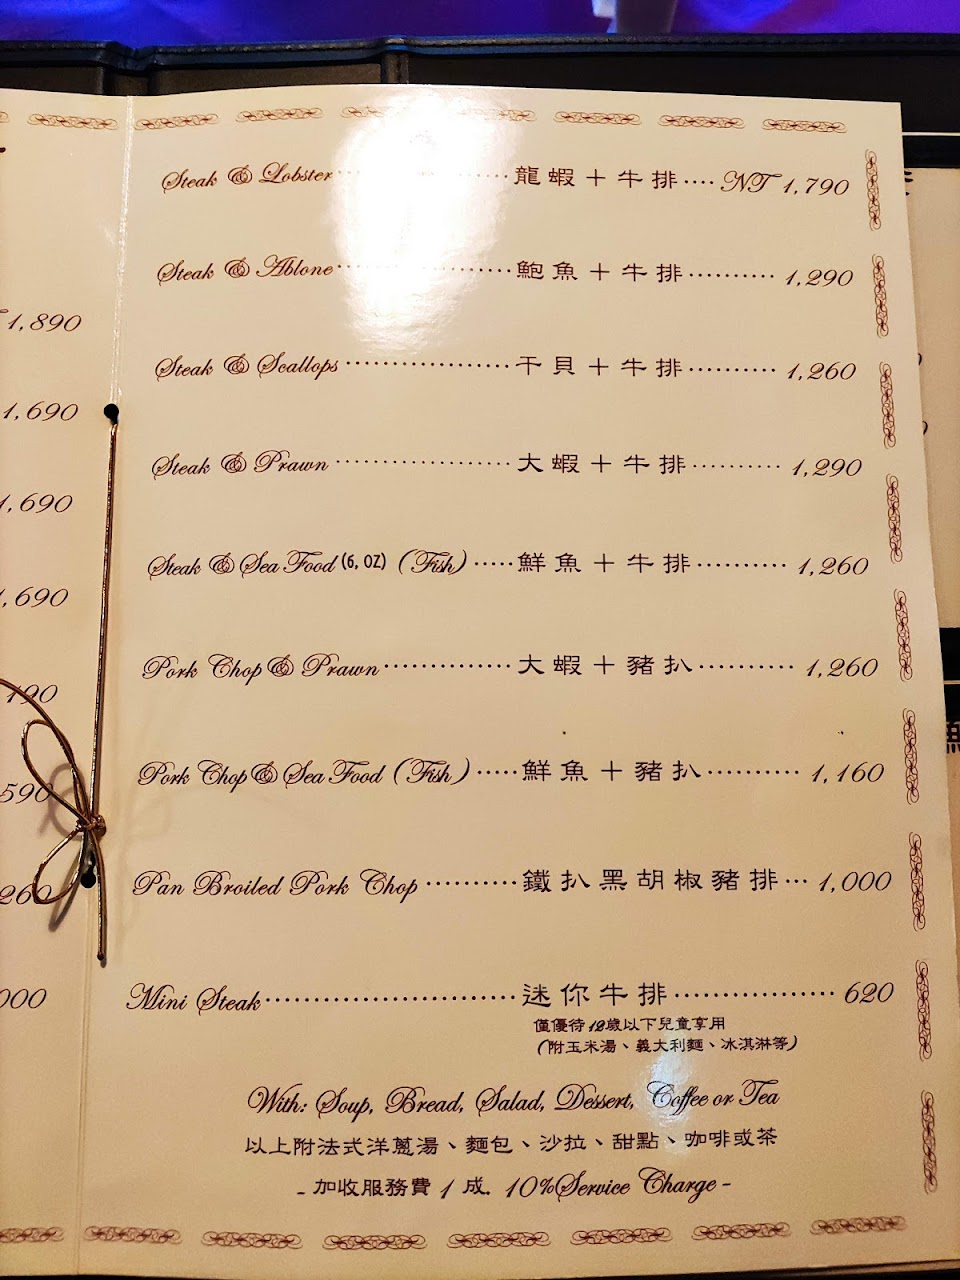 Steak & Lobster 龍蝦＋牛排 NT 1,790
Steak & Ablone 鮑魚＋牛排 1,290
1,890
Steak & Scallops 干貝＋牛排 1,260
1,690
Steak & Prawn 大蝦＋牛排 1,290
1,690
Steak & Sea Food (6, OZ) (Fish) 鮮魚＋牛排 1,260
1,690
Pork Chop & Prawn 大蝦＋豬扒 1,260
Pork Chop & Sea Food (Fish) 鮮魚＋豬扒 1,160
Pan Broiled Pork Chop 鐵扒黑胡椒豬排 1,000
Mini Steak 迷你牛排 620
僅優待12歲以下兒童享用
(附玉米湯、義大利麵、冰淇淋等)
With: Soup, Bread, Salad, Dessert, Coffee or Tea
以上附法式洋蔥湯、麵包、沙拉、甜點、咖啡或茶
- 加收服務費 1 成. 10% Service Charge -